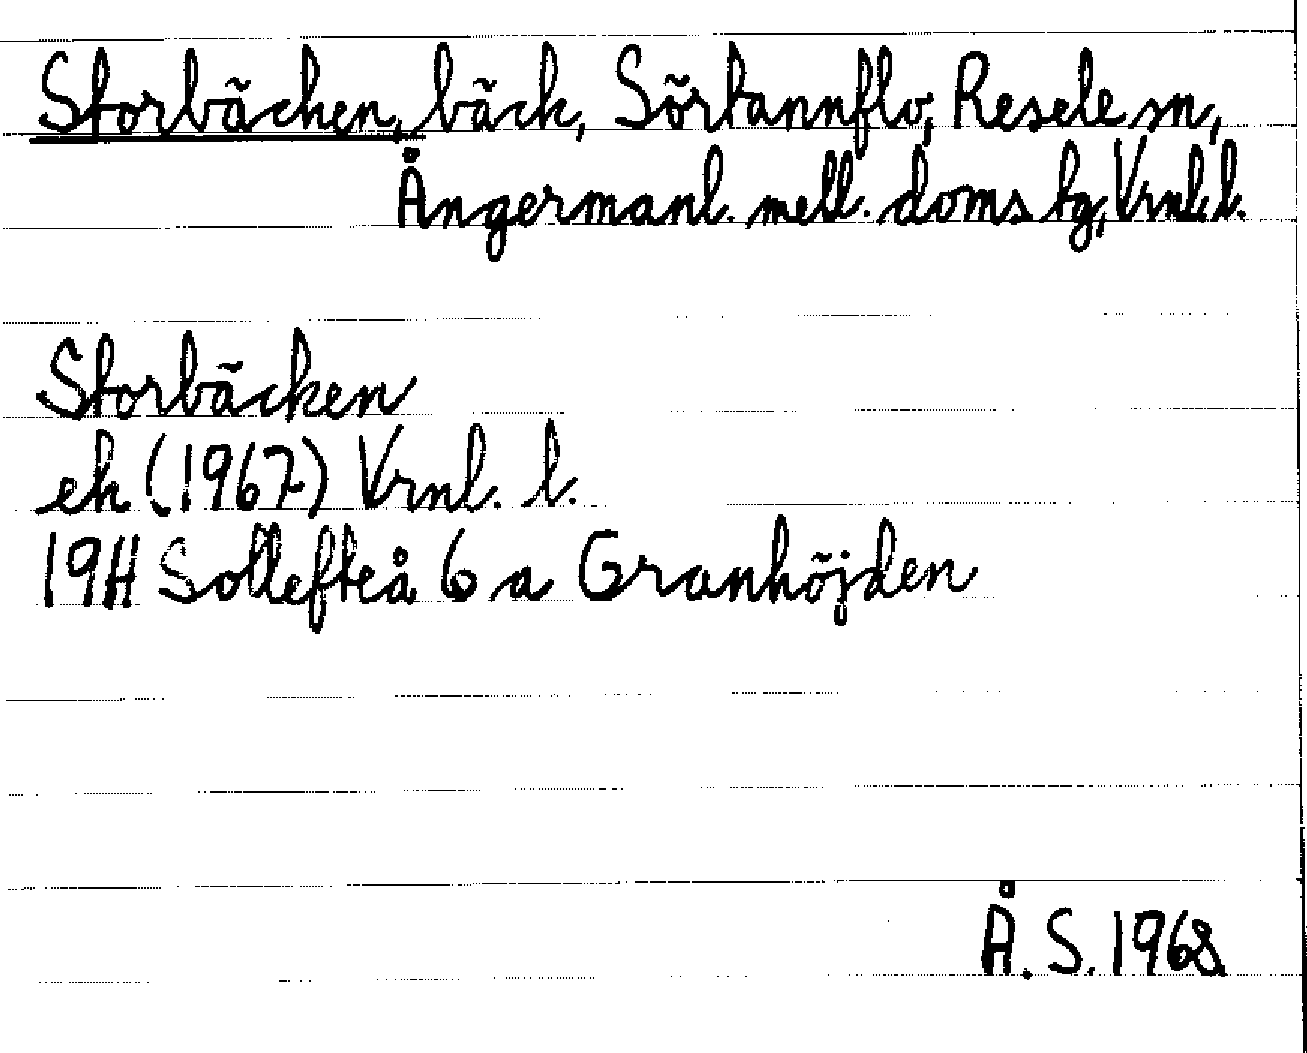 Storbäcken, bäck, Sörtannflo, Resele sn,
Ångermanl. mell. doms tg, Vrnl. l.
Storbäcken
ek (1967) Vrnl. l.
19H Sollefteå 6 a Granhöjden
Å. S. 1968